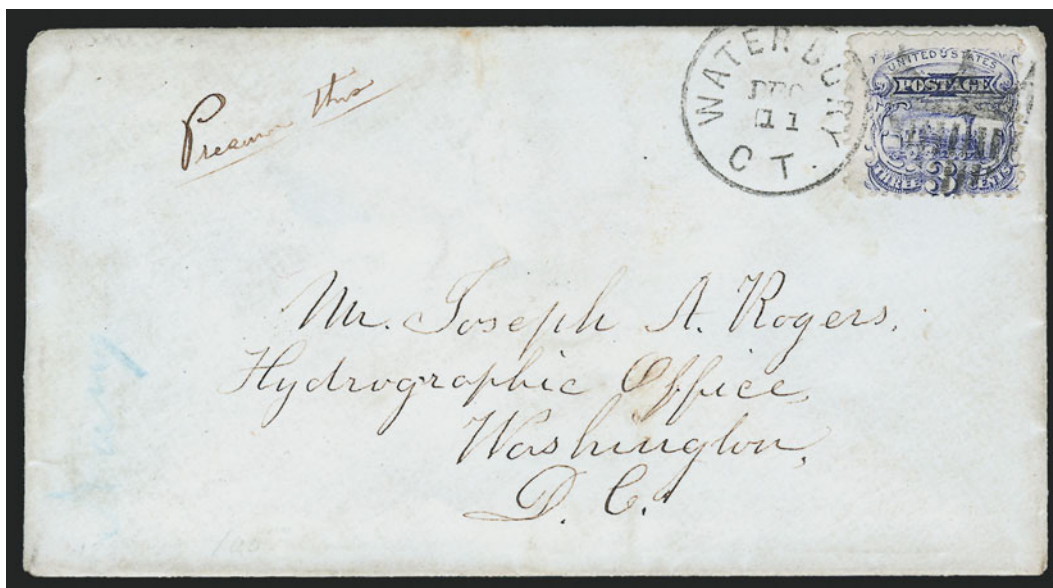 this
WATERBURY
DEC
11
CT.
UNITED STATES
POSTAGE
THREE 3 CENTS
Mr. Joseph A. Rogers,
Hydrographic Office,
Washington,
D. C.